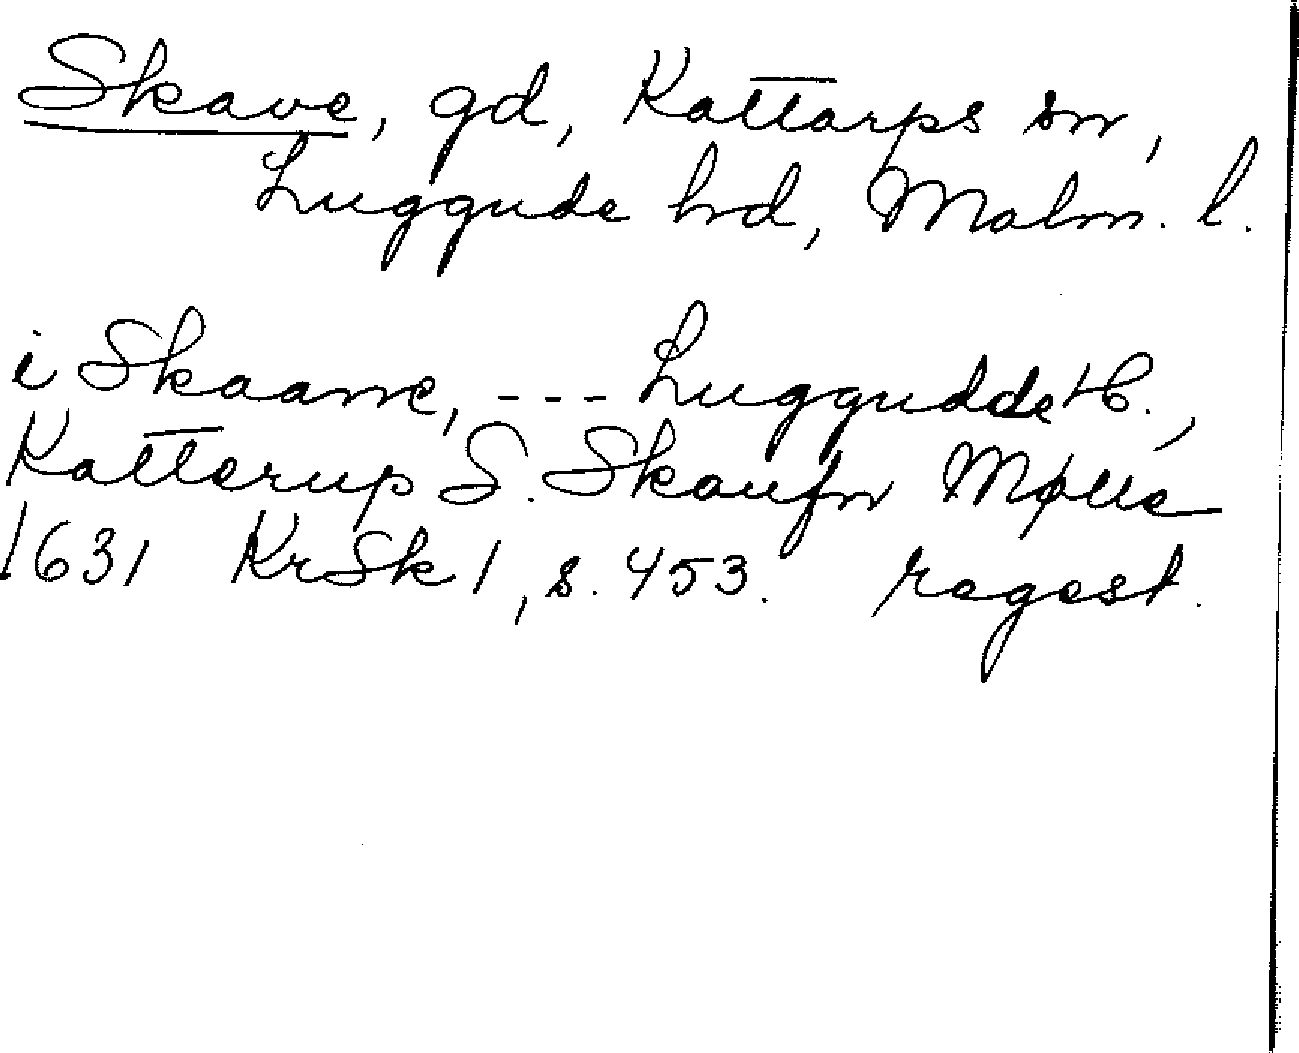 Skave, gd, Kattarps sn,
Luggude hd, Malm. l.
i Skaane, --- Luggudde H.,
Katterup S. Skaufn Mølle
1631 KrSk 1, s. 453. regest.